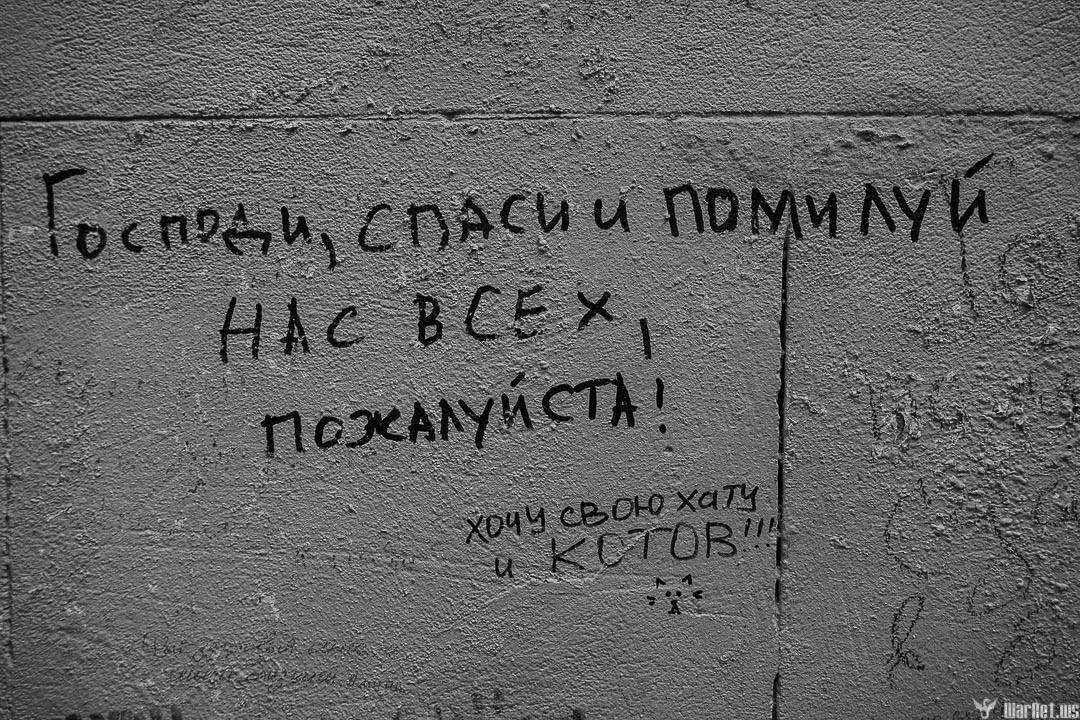 Господи, спаси и помилуй
нас всех,
пожалуйста!
хочу свою хату
и КОТОВ!!!
WarNet.ws